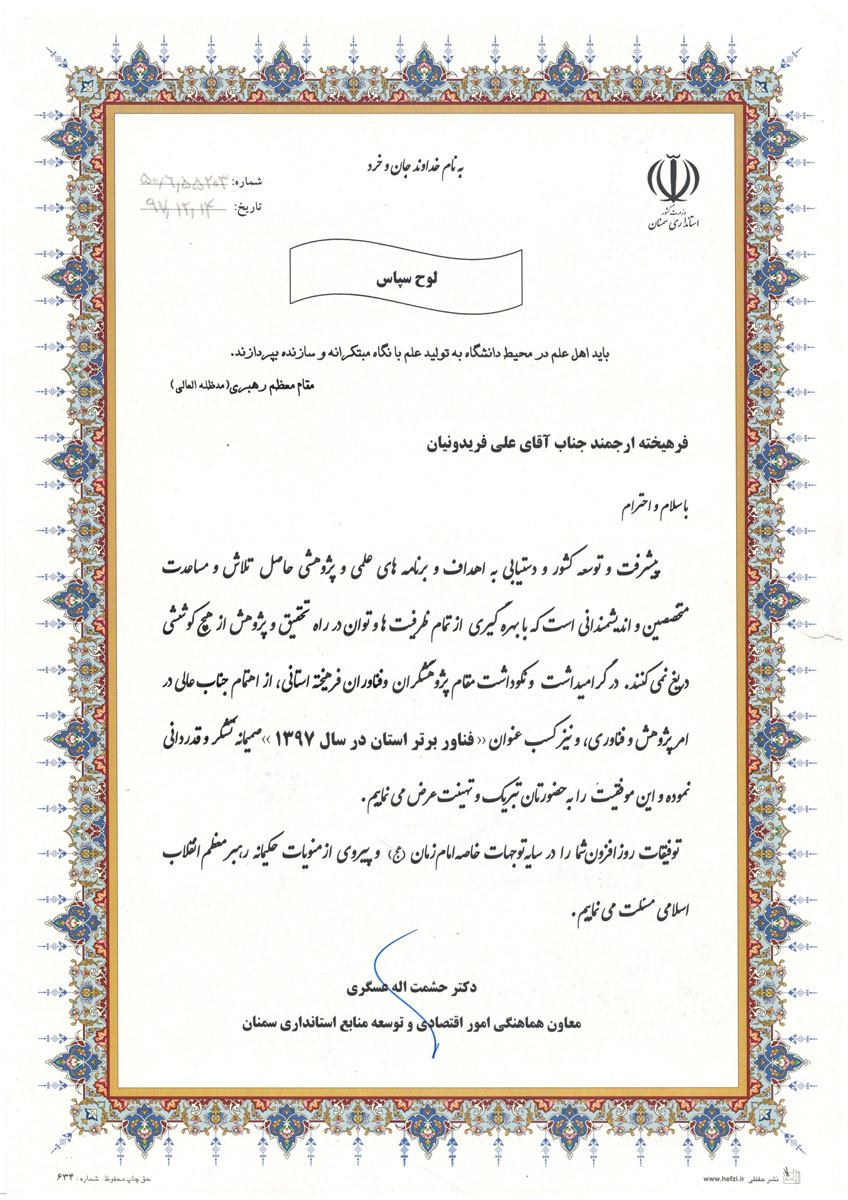 به نام خداوند جان و خرد
وزارت کشور
استانداری سمنان
شماره: ۵۰/۶/۵۵۲۰۳
تاریخ: ۹۷/۱۲/۱۴
لوح سپاس
باید اهل علم در محیط دانشگاه به تولید علم با نگاه مبتکرانه و سازنده بپردازند.
مقام معظم رهبری(مدظله العالی)
فرهیخته ارجمند جناب آقای علی فریدونیان
با سلام و احترام
پیشرفت و توسعه کشور و دستیابی به اهداف و برنامه های علمی و پژوهشی حاصل تلاش و مساعدت
متخصصین و اندیشمندانی است که با بهره گیری از تمام ظرفیت ها و توان در راه تحقیق و پژوهش از هیچ کوششی
دریغ نمی کنند. در گرامیداشت و نکوداشت مقام پژوهشگران وفناوران فرهیخته استانی، از اهتمام جناب عالی در
امر پژوهش و فناوری، و نیز کسب عنوان «فناور برتر استان در سال ۱۳۹۷» صمیمانه تشکر و قدردانی
نموده و این موفقیت را به حضورتان تبریک و تهنیت عرض می نماییم.
توفیقات روز افزون شما را در سایه توجهات خاصه امام زمان (عج) و پیروی از منویات حکیمانه رهبر معظم انقلاب
اسلامی مسئلت می نماییم.
دکتر حشمت اله عسگری
معاون هماهنگی امور اقتصادی و توسعه منابع استانداری سمنان
نشر حفظی www.hefzi.ir
حق چاپ محفوظ. شماره: ۶۳۴